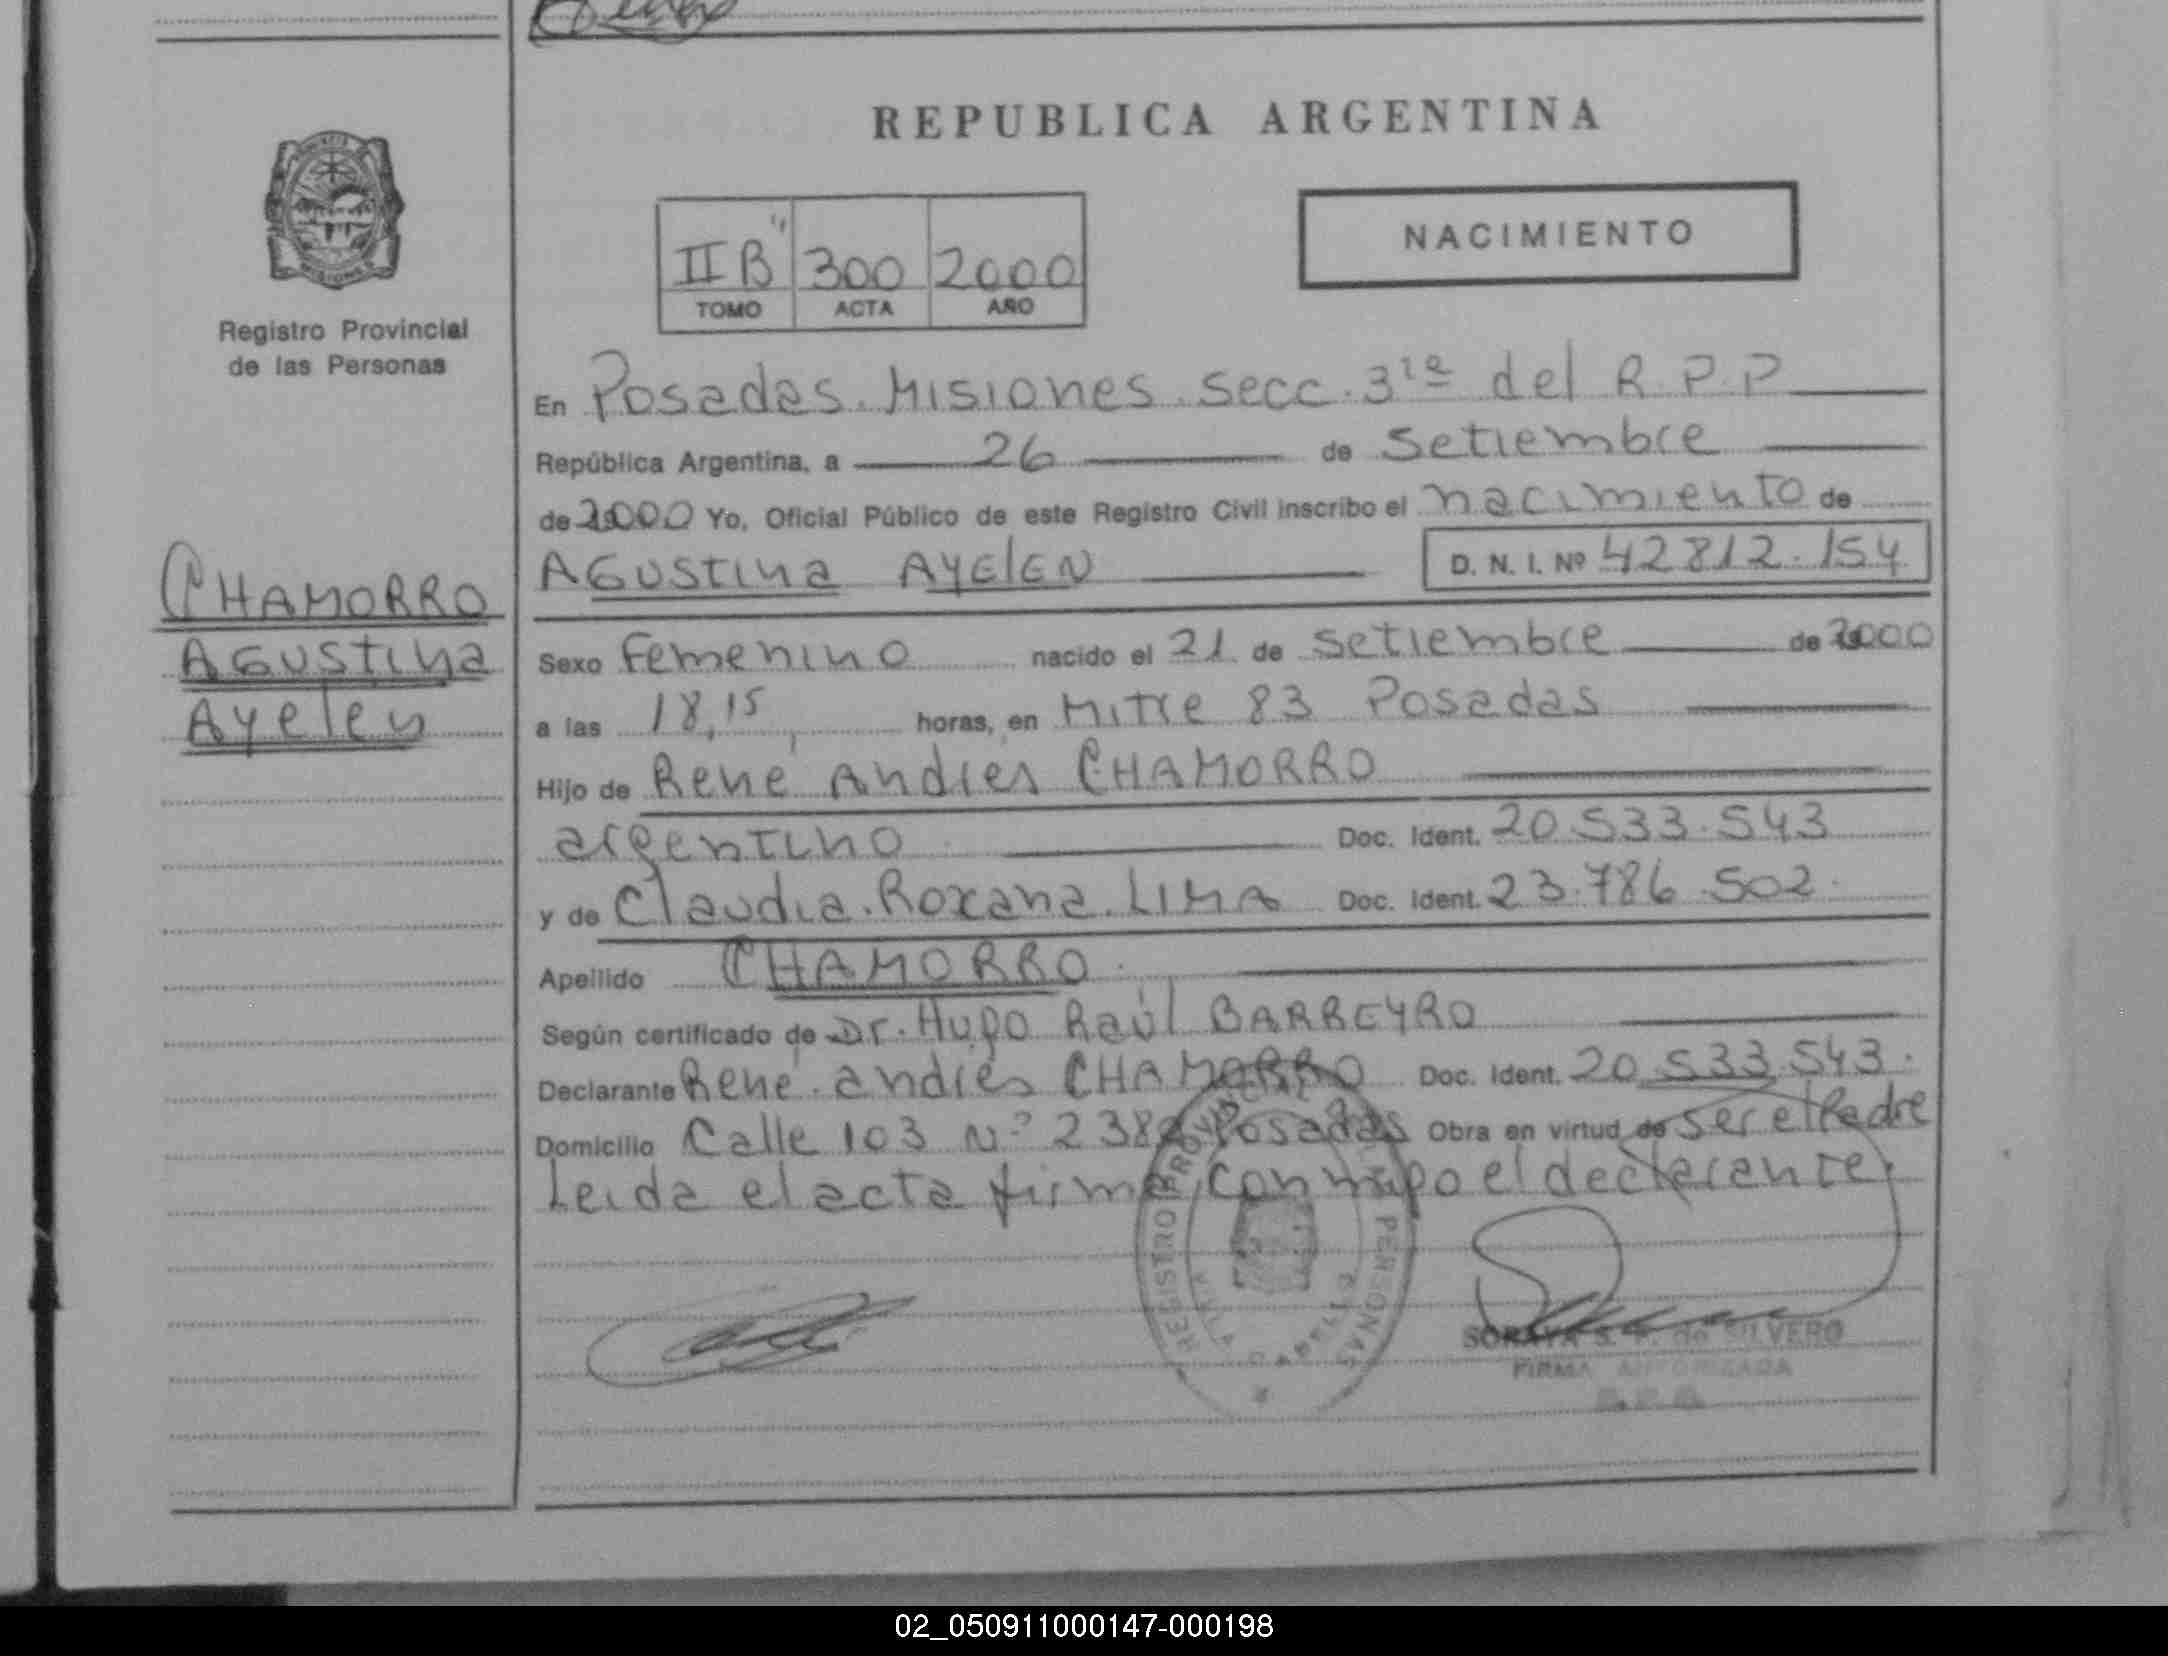 REPUBLICA ARGENTINA
II B" 300 2000
TOMO ACTA AÑO
NACIMIENTO
MISIONES
Registro Provincial
de las Personas
CHAMORRO
AGUSTINA
Ayelen
En Posadas. Misiones. Secc. 3ra del R.P.P
República Argentina, a 26 de Setiembre
de 2000 Yo, Oficial Público de este Registro Civil inscribo el nacimiento de
AGUSTINA AYELEN D. N. I. Nº 42812.154
Sexo Femenino nacido el 21 de Setiembre de 2000
a las 18,15 horas, en Mitre 83 Posadas
Hijo de René Andrés CHAMORRO
argentino Doc. Ident. 20.533.543
y de Claudia. Roxana. LIMA Doc. Ident. 23.786.502.
Apellido CHAMORRO.
Según certificado de Dr. Hugo Raúl BARREYRO
Declarante René. andrés CHAMORRO Doc. Ident. 20.533.543.
Domicilio Calle 103 Nº 238 Posadas Obra en virtud de ser el Padre
Leida el acta firma conmigo el declarante.
REGISTRO PROVINCIAL PERSONAS
SORAYA S. de SILVERO
FIRMA AUTORIZADA
02_050911000147-000198